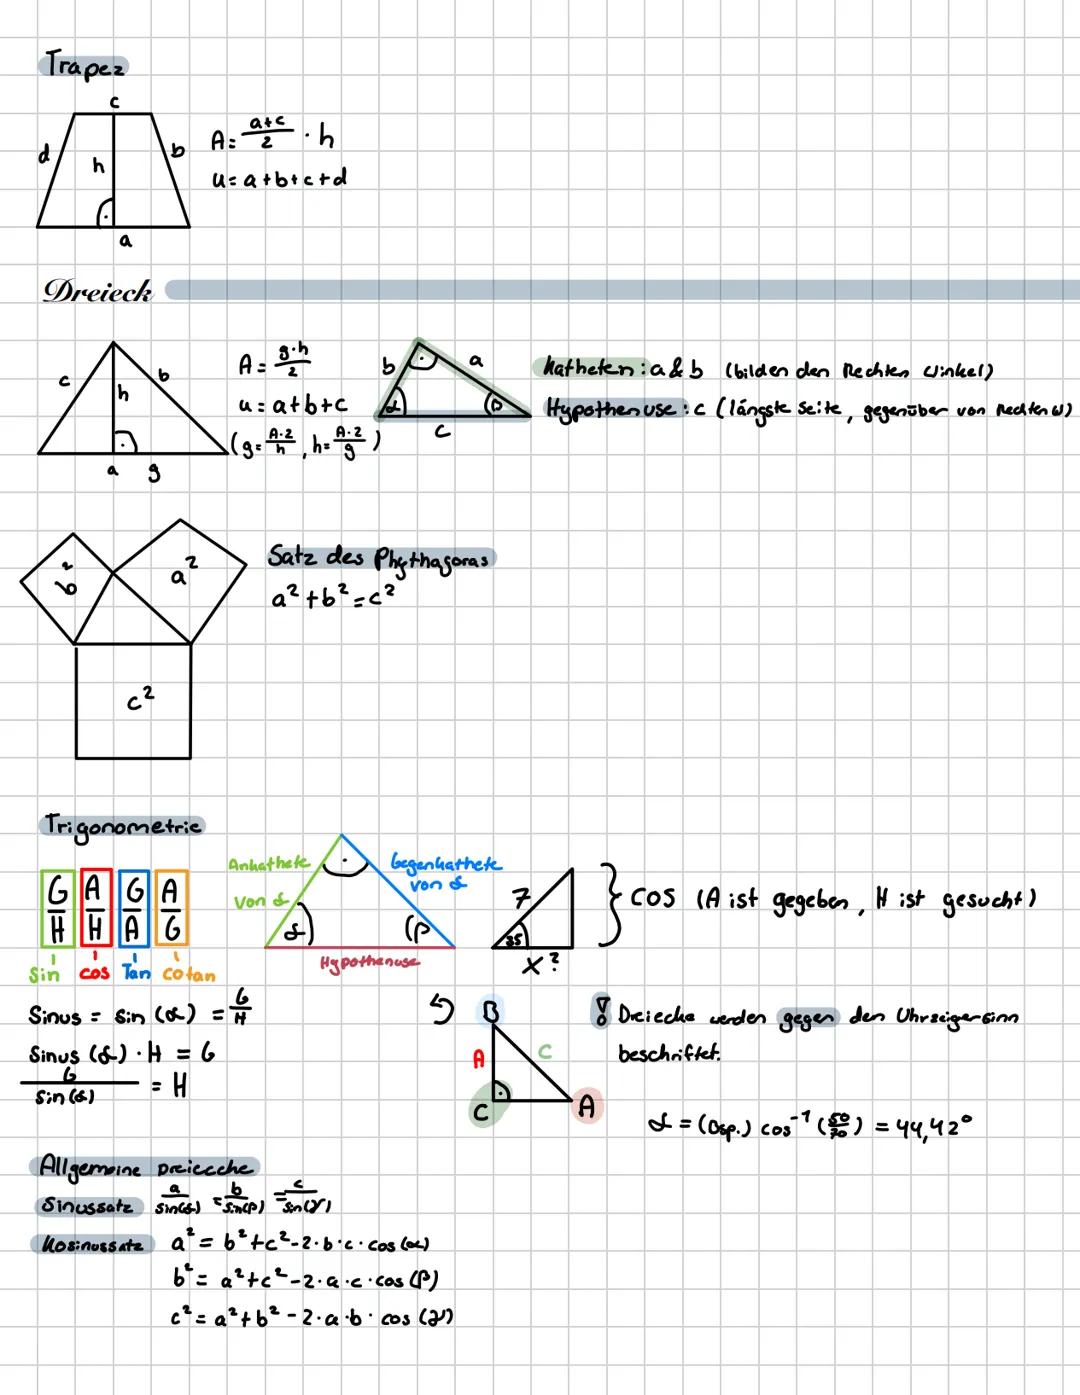 Trapez
c
d h b
a
A = a+c/2 · h
u = a+b+c+d
Dreieck
c h b
a g
A = g·h/2
u = a+b+c
(g = A·2/h , h = A·2/g)
b a
α β
c
Katheten : a & b (bilden den Rechten Winkel)
Hypothenuse : c (längste Seite, gegenüber von Rechten W)
b² a²
c²
Satz des Phythagoras
a² + b² = c²
Trigonometrie
G/H A/H G/A A/G
sin cos Tan cotan
Ankathete
von α
Gegenkathete
von α
α β
Hypothenuse
7
35
x?
} COS (A ist gegeben, H ist gesucht)
Sinus = sin (α) = G/H
Sinus (α) · H = G
G/sin(α) = H
B
A C
C A
! Dreiecke werden gegen den Uhrzeigersinn
beschriftet.
α = (Bsp.) cos⁻¹ (50/70) = 44,42°
Allgemeine Dreiecke
Sinussatz a/sin(α) = b/sin(β) = c/sin(γ)
Kosinussatz a² = b² + c² - 2 · b · c · cos (α)
b² = a² + c² - 2 · a · c · cos (β)
c² = a² + b² - 2 · a · b · cos (γ)